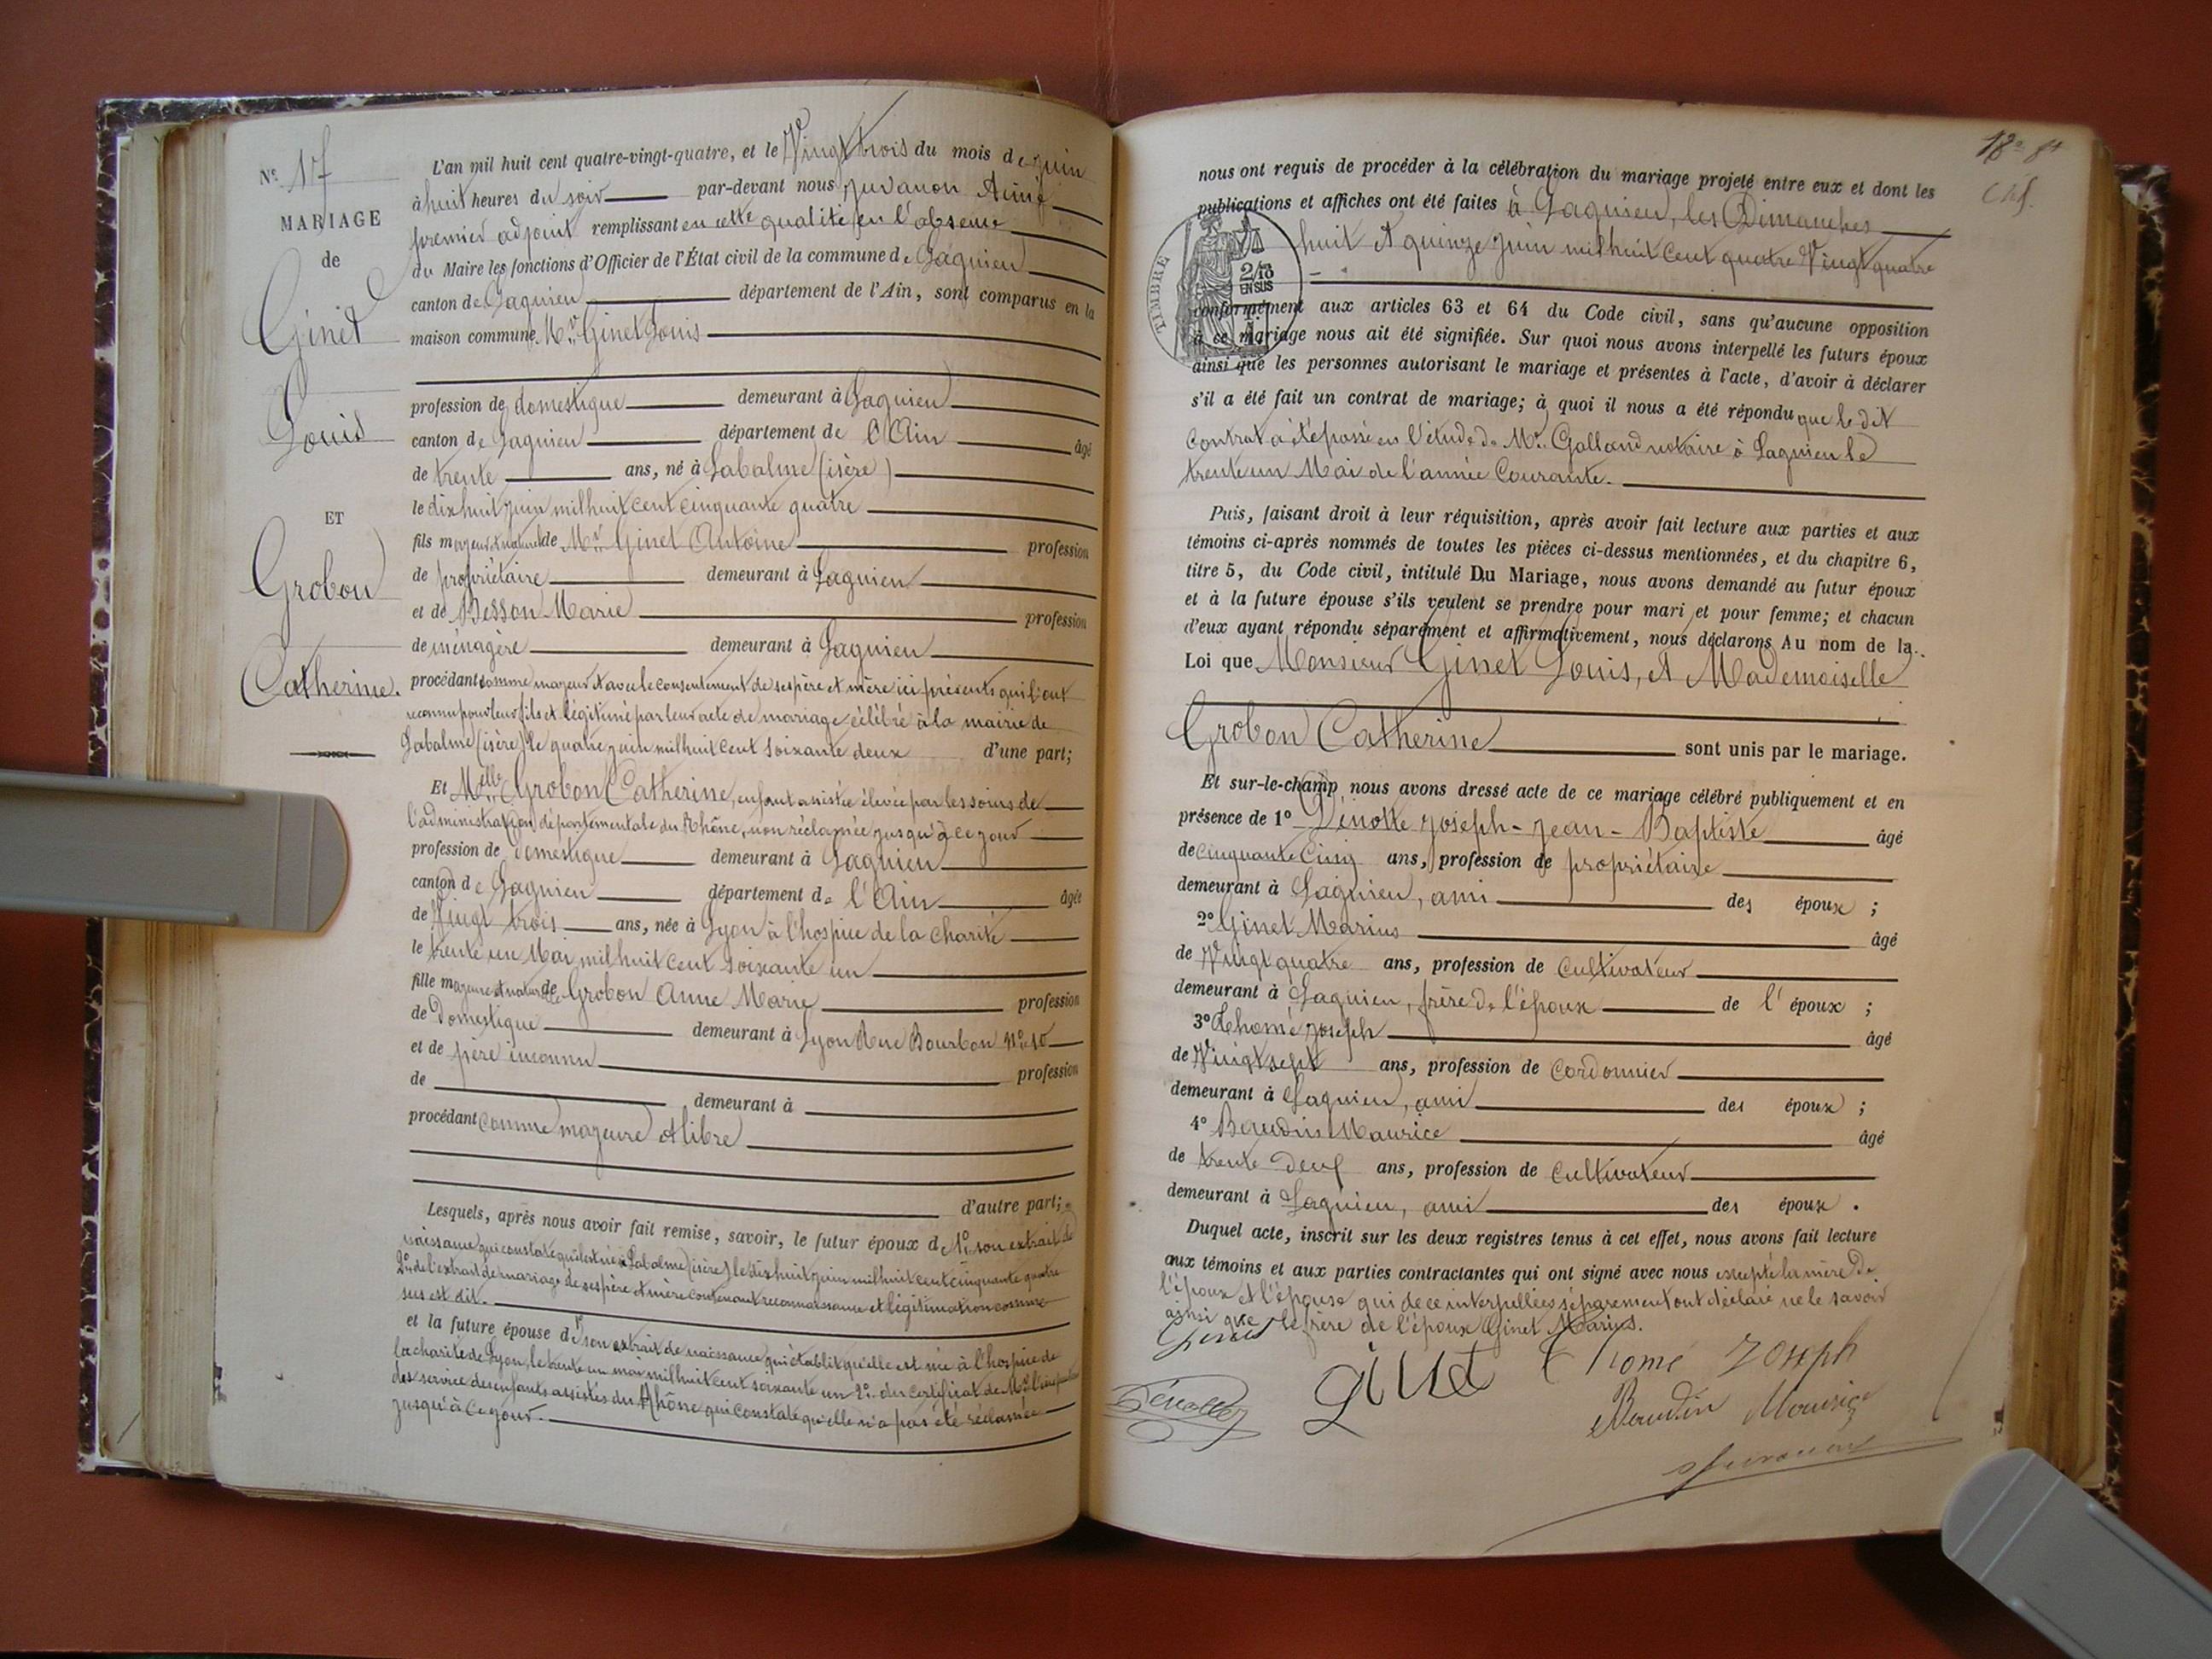 N° 17
MARIAGE
de
Ginet
Louis
ET
Grobon
Catherine.
L'an mil huit cent quatre-vingt-quatre, et le Vingt trois du mois de juin
à huit heures du soir par-devant nous Juvanon Aimé
premier adjoint remplissant en cette qualité, en l'absence
du Maire les fonctions d'Officier de l'État civil de la commune de Lagnieu
canton de Lagnieu département de l'Ain, sont comparus en la
maison commune. Mr. Ginet Louis
profession de domestique demeurant à Lagnieu
canton de Lagnieu département de l'Ain âgé
de trente ans, né à Labalme (isère)
le dix huit juin mil huit cent cinquante quatre
fils majeur et naturel de Mr. Ginet Antoine profession
de propriétaire demeurant à Lagnieu
et de Besson Marie profession
de ménagère demeurant à Lagnieu
procédant comme majeur et avec le consentement de ses père et mère ici présents qui l'ont
reconnu pour leur fils et légitimé par leur acte de mariage célébré à la mairie de
Labalme (isère) le quatre juin mil huit cent soixante deux d'une part;
Et Melle Grobon Catherine, enfant assistée élevée par les soins de
l'administration départementale du Rhône, non réclamée jusqu'à ce jour
profession de domestique demeurant à Lagnieu
canton de Lagnieu département de l'Ain âgée
de Vingt trois ans, née à Lyon à l'hospice de la Charité
le trente un Mai mil huit cent soixante un
fille majeure et naturelle de Grobon Anne Marie profession
de Domestique demeurant à Lyon Rue Bourbon n° 10
et de père inconnu profession
de demeurant à
procédant comme majeure et libre
d'autre part;
Lesquels, après nous avoir fait remise, savoir, le futur époux de 1° son extrait de
naissance qui constate qu'il est né à Labalme (isère) le dix huit juin mil huit cent cinquante quatre
2° de l'extrait de mariage de ses père et mère contenant reconnaissance et légitimation comme
sus est dit.
et la future épouse de 1° son extrait de naissance qui établit qu'elle est née à l'hospice de
la charité de Lyon, le trente un mai mil huit cent soixante un 2° du certificat de Mr. l'inspecteur
des service des enfants assistés du Rhône qui constate qu'elle n'a pas été réclamée
jusqu'à ce jour.
18 84
nous ont requis de procéder à la célébration du mariage projeté entre eux et dont les
publications et affiches ont été faites à Lagnieu, les Dimanches
huit et quinze juin mil huit cent quatre Vingt quatre
TIMBRE
2/10
EN SUS
conformément aux articles 63 et 64 du Code civil, sans qu'aucune opposition
à ce mariage nous ait été signifiée. Sur quoi nous avons interpellé les futurs époux
ainsi que les personnes autorisant le mariage et présentes à l'acte, d'avoir à déclarer
s'il a été fait un contrat de mariage; à quoi il nous a été répondu que le dit
Contrat a été passé en l'étude de Mr. Galland notaire à Lagnieu le
trente un Mai de l'année Courante.
Puis, faisant droit à leur réquisition, après avoir fait lecture aux parties et aux
témoins ci-après nommés de toutes les pièces ci-dessus mentionnées, et du chapitre 6,
titre 5, du Code civil, intitulé Du Mariage, nous avons demandé au futur époux
et à la future épouse s'ils veulent se prendre pour mari et pour femme; et chacun
d'eux ayant répondu séparément et affirmativement, nous déclarons Au nom de la
Loi que Monsieur Ginet Louis, et Mademoiselle
Grobon Catherine sont unis par le mariage.
Et sur-le-champ nous avons dressé acte de ce mariage célébré publiquement et en
présence de 1° Dénolte Joseph-Jean-Baptiste âgé
de cinquante cinq ans, profession de propriétaire
demeurant à Lagnieu, ami des époux ;
2° Ginet Marius âgé
de Vingt quatre ans, profession de Cultivateur
demeurant à Lagnieu, frère de l'époux de l'époux ;
3° Thomé Joseph âgé
de Vingt sept ans, profession de Cordonnier
demeurant à Lagnieu, ami des époux ;
4° Baudin Maurice âgé
de trente deux ans, profession de Cultivateur
demeurant à Lagnieu, ami des époux .
Duquel acte, inscrit sur les deux registres tenus à cet effet, nous avons fait lecture
aux témoins et aux parties contractantes qui ont signé avec nous excepté la mère de
l'époux et l'épouse qui de ce interpellées séparément ont déclaré ne le savoir
ainsi que le frère de l'époux Ginet Marius.
Ginet
ginet
Thomé Joseph
Baudin Maurice
Juvanon